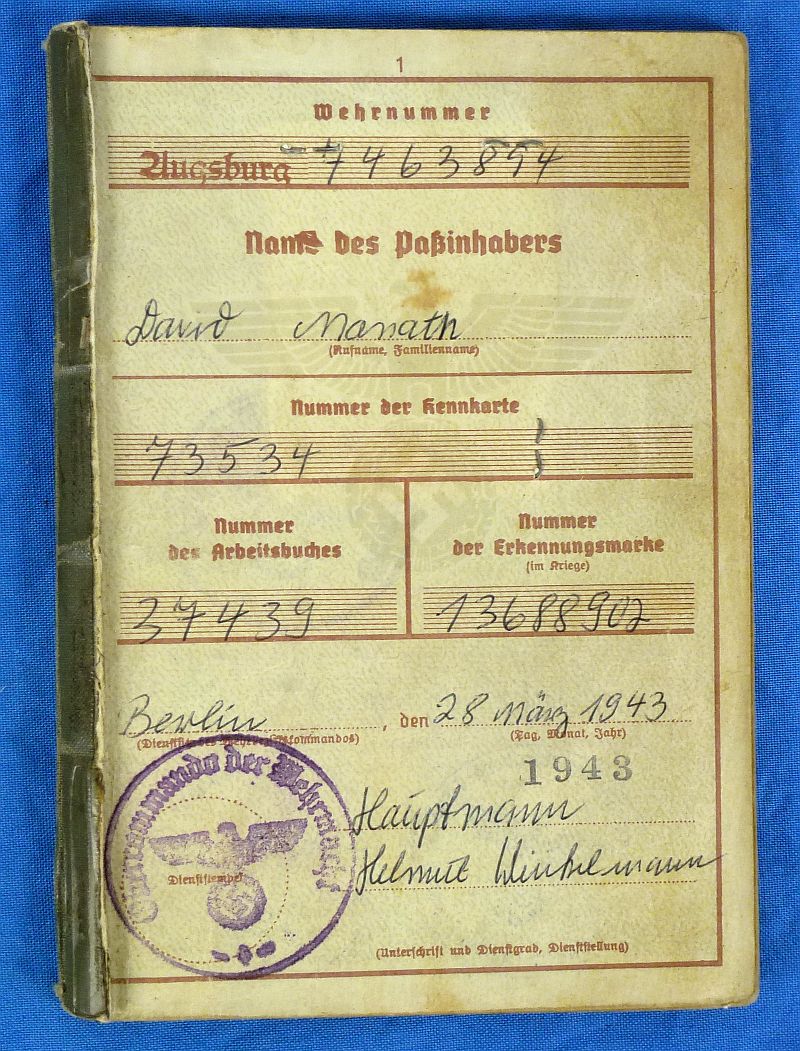 1
Wehrnummer
Augsburg 7463854
Name des Paßinhabers
David
(Rufname, Familienname)
Nummer der Kennkarte
73534
Nummer
des Arbeitsbuches
Nummer
der Erkennungsmarke
(im Kriege)
37439
13688902
Berlin, den 28 März 1943
(Dienststelle des Wehrbezirkskommandos)
(Tag, Monat, Jahr)
1943
Hauptmann
Helmut Winkelmann
kommando der Wehrmacht
Dienststempel
(Unterschrift und Dienstgrad, Dienststellung)